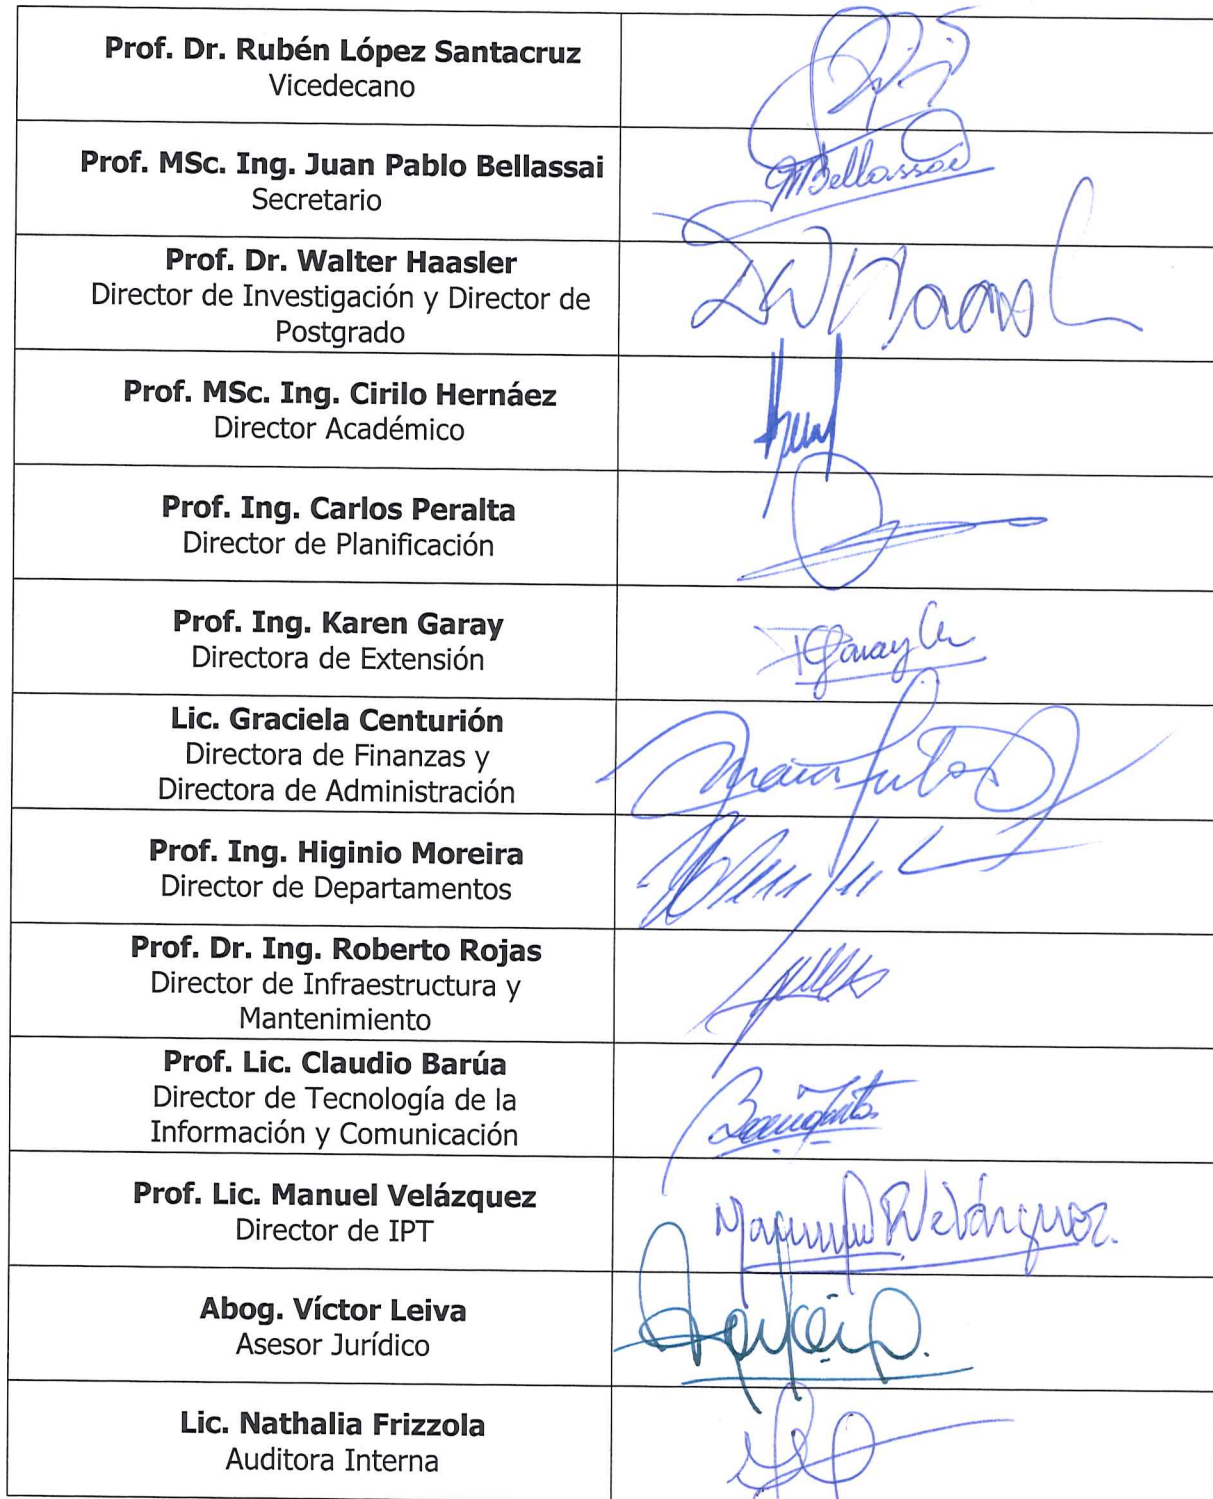 Prof. Dr. Rubén López Santacruz
Vicedecano
Prof. MSc. Ing. Juan Pablo Bellassai
Bellassai
Secretario
Prof. Dr. Walter Haasler
Director de Investigación y Director de
Postgrado
Prof. MSc. Ing. Cirilo Hernáez
Director Académico
Prof. Ing. Carlos Peralta
Director de Planificación
Prof. Ing. Karen Garay
Garay
Directora de Extensión
Lic. Graciela Centurión
Directora de Finanzas y
Directora de Administración
Prof. Ing. Higinio Moreira
Director de Departamentos
Prof. Dr. Ing. Roberto Rojas
Director de Infraestructura y
Mantenimiento
Prof. Lic. Claudio Barúa
Director de Tecnología de la
Información y Comunicación
Prof. Lic. Manuel Velázquez
Director de IPT
Abog. Víctor Leiva
Asesor Jurídico
Lic. Nathalia Frizzola
Auditora Interna